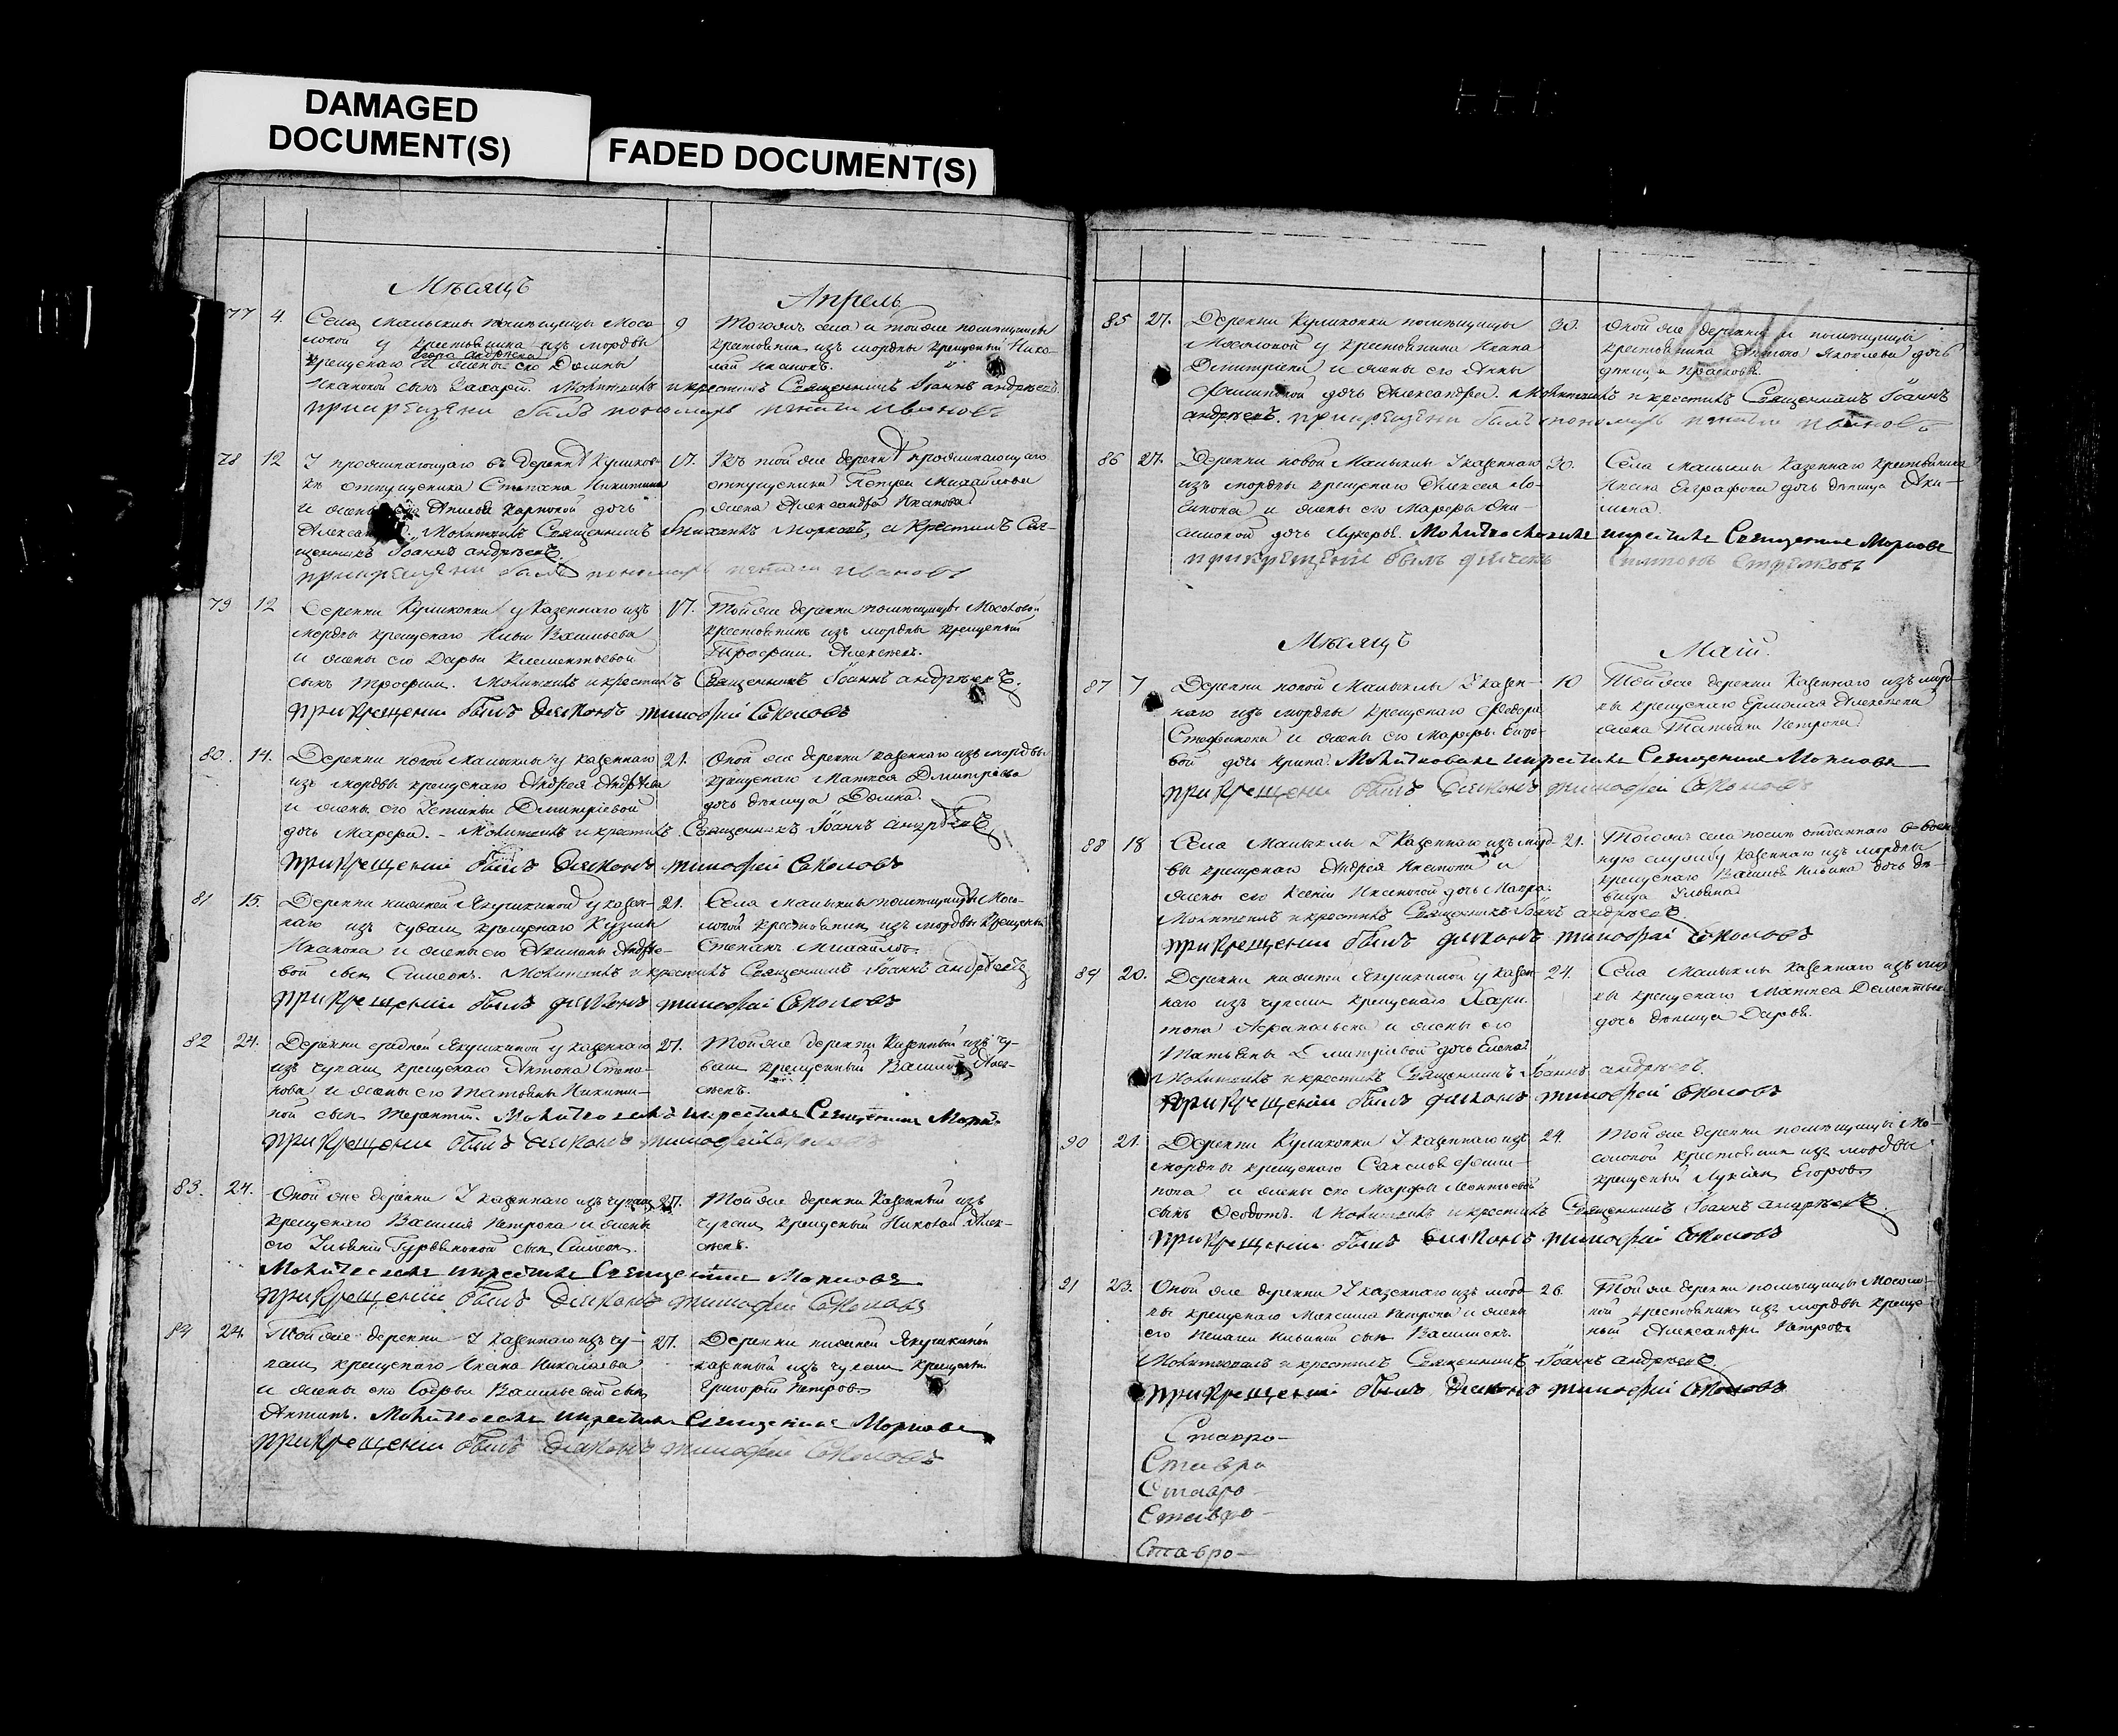 DAMAGED
DOCUMENT(S)
FADED DOCUMENT(S)
Мѣсяцъ
Апрель
77 4. Села Малыклы помѣщицы Мосо-
ловой у крестьянина изъ мордвы
крещенаго Егора Андрѣева и жены его Домны
Ивановой сынъ Захарій. Молитвилъ и крестилъ Священникъ Іоаннъ Андрѣевъ.
9 Тогожъ села и тойже помѣщицы
крестьянинъ изъ мордвы крещеный Нико-
лай Ивановъ.
при крещени былъ пономарь Иванов
78 12 У проживающаго въ деревнѣ Куликов-
кѣ отпущеника Степана Никитина
и жены его Карповой дочь
Молитвилъ Священникъ Морковъ, а крестилъ Свя-
щенникъ Іоаннъ Андрѣевъ.
17. Въ той же деревнѣ проживающаго
отпущеника Петра Михайлова
жена Александра Иванова
при крещени былъ пономарь Ивановъ
79 12 Деревни Куликовки у казеннаго изъ
мордвы крещенаго Ильи Васильева
и жены его Дарьи Клементьевой
сынъ Трофим. Молитвилъ и крестилъ Священникъ Іоаннъ Андрѣевъ.
17. Тойже деревни помѣщицы Мосоловой
крестьянинъ изъ мордвы крещеный
Трофим Алексѣевъ.
при крещении былъ диаконъ тимофей Соколовъ
80. 14. Деревни новой Малыклы у казеннаго
изъ мордвы крещенаго Андрея Андрѣева
и жены его Устиньи Дмитріевой
дочь Марѳа. - Молитвилъ и крестилъ Священникъ Іоаннъ Андрѣевъ
21. Оной же деревни казеннаго изъ мордвы
крещенаго Матвея Дмитріева
дочь дѣвица Домна.
при крещении былъ диаконъ тимофей Соколовъ
81 15. Деревни нижней Якушкиной у казен-
наго изъ чуваш крещенаго Кузьмы
Иванова и жены его Акилины Андрѣе-
вой сынъ Симеонъ. Молитвилъ и крестилъ Священникъ Іоаннъ Андрѣевъ
21. Села Малыклы помѣщицы Мосо-
ловой крестьянин изъ мордвы крещеный
Степанъ Михайловъ.
при крещении былъ диаконъ тимофей Соколовъ
82 24. Деревни средней Якушкиной у казеннаго
изъ чуваш крещенаго Антона Степа-
нова и жены его Татьяны Никити-
ной сынъ Терентій.
27. Тойже деревни казенный изъ чу-
ваш крещенный Василій Алек-
сѣевъ.
при крещении былъ диаконъ тимофей Соколовъ
83. 24. Оной же деревни у казеннаго изъ чуваш
крещенаго Василія Петрова и жены
его Ульяніи сын Симеон.
Священник Морковъ
27. Тойже деревни казенный изъ
чуваш крещеный Николай Алек-
сѣевъ.
при крещении былъ диаконъ тимофей Соколовъ
84 24. Тойже деревни у казеннаго изъ чу-
ваш крещенаго Ивана Николаева
и жены его Софьи Васильевой сынъ
Антипъ. Священник Морковъ
27. Деревни нижней Якушкиной
казенный изъ чуваш крещеный
Григорій Петровъ
при крещении былъ диаконъ тимофей Соколовъ
85 27. Деревни Куликовки помѣщицы
Мосоловой у крестьянина Ивана
Дмитріева и жены его Анны
Филиповой дочь Александра. Молитвилъ и крестилъ Священникъ Іоаннъ
Андрѣевъ. при крещени былъ пономарь Ивановъ
30. Оной же деревни и помѣщицы
крестьянина Антона Яковлева дочь
дѣвица Прасковья.
86 27. Деревни новой Малыклы у казеннаго
изъ мордвы крещенаго Алексея
и жены его Марѳы Они-
симовой дочь Лукерья. Священник Морковъ
30. Села Малыклы казеннаго крестьянина
Ивана Евграфова дочь дѣвица Аки-
лина.
при крещении былъ дьячекъ
Мѣсяцъ
Маій.
87 7 Деревни новой Малыклы у казен-
наго изъ мордвы крещенаго Ѳедора
и жены его Марѳы
дочь Ирина. Священник Морковъ
10 Тойже деревни казеннаго изъ морд-
вы крещенаго Ермолая Алексѣева
жена Татьяна Петрова
при крещении былъ диаконъ тимофей Соколовъ
88 18 Села Малыклы у казеннаго изъ морд-
вы крещенаго Андрея и
жены его Ксеніи дочь Мавра.
Молитвилъ и крестилъ Священникъ Іоаннъ Андрѣевъ.
21. Тогожъ села отданнаго в воен-
ную службу казеннаго изъ мордвы
крещенаго Василья Ильина дочь дѣ-
вица Ульяна
при крещении былъ диаконъ тимофей Соколовъ
89 20. Деревни нижней Якушкиной у казен-
наго изъ чуваш крещенаго Хари-
тона и жены его
Татьяны Дмитріевой дочь Елена.
Молитвилъ и крестилъ Священникъ Іоаннъ Андрѣевъ.
24. Села Малыклы казеннаго изъ морд-
вы крещенаго Матвея Дементьева
дочь дѣвица Дарья.
при крещении былъ диаконъ тимофей Соколовъ
90 21. Деревни Куликовки у казеннаго изъ
мордвы крещенаго
и жены его Марфы Леонтьевой
сынъ Ѳедотъ. Молитвилъ и крестилъ Священникъ Іоаннъ Андрѣевъ.
24. Тойже деревни помѣщицы Мо-
соловой крестьянин изъ мордвы
крещеный Лукіянъ Егоровъ
при крещении былъ диаконъ тимофей Соколовъ
91 23. Оной же деревни у казеннаго изъ морд-
вы крещенаго Максима Петрова и жены
его Пелагеи Ильиной сынъ
Молитвовалъ и крестилъ Священникъ Іоаннъ Андрѣевъ.
26. Тойже деревни помѣщицы Мосоло-
вой крестьянинъ изъ мордвы креще-
ный Александръ Петровъ
при крещении былъ диаконъ тимофей Соколовъ
Ставро-
Ставро
Ставро-
Ставро-
Ставро-